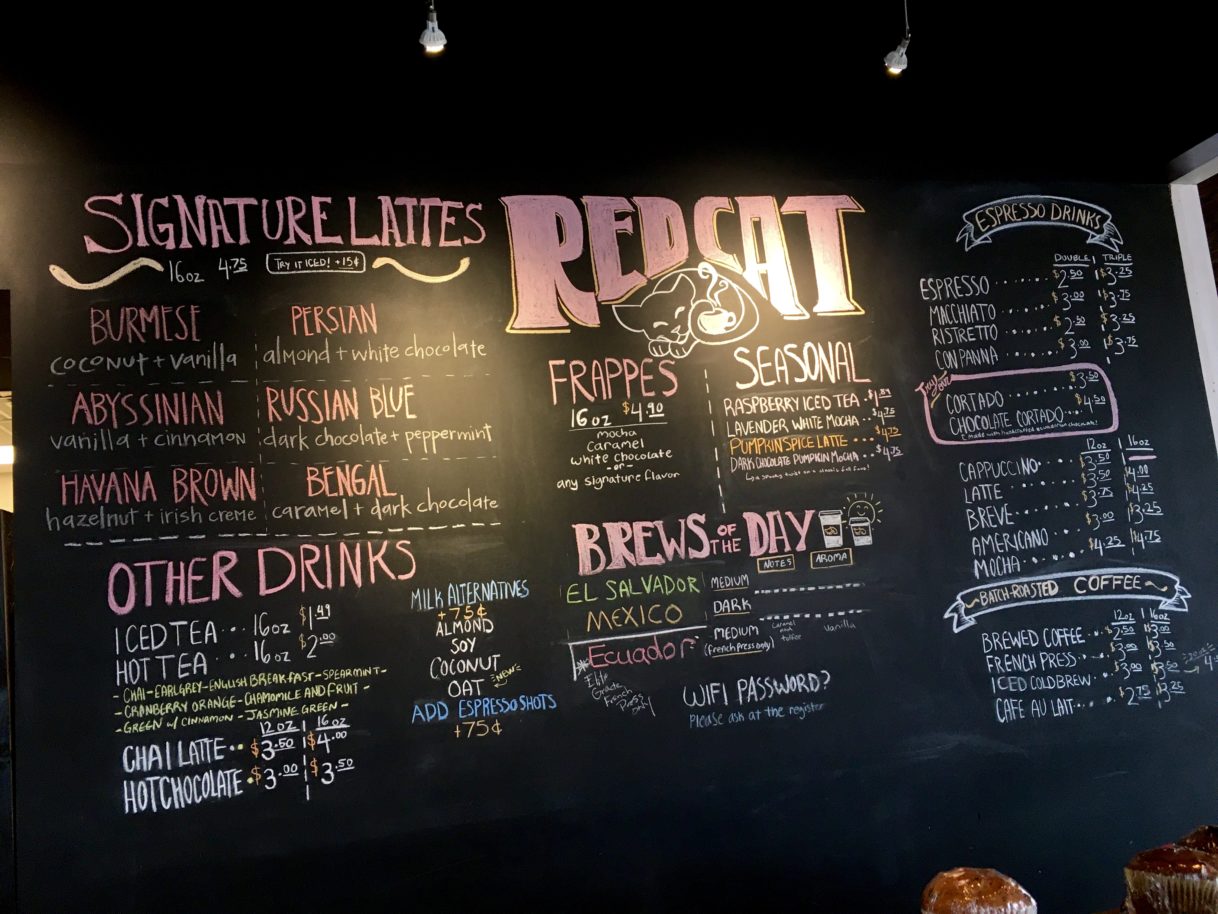 SIGNATURE LATTES
16oz 4.75 TRY IT ICED! +15¢
BURMESE
coconut + vanilla
PERSIAN
almond + white chocolate
ABYSSINIAN
vanilla + cinnamon
RUSSIAN BLUE
dark chocolate + peppermint
HAVANA BROWN
hazelnut + irish creme
BENGAL
caramel + dark chocolate
OTHER DRINKS
ICED TEA 16oz $1.49
HOT TEA 16oz $2.00
- CHAI - EARL GREY - ENGLISH BREAKFAST - SPEARMINT -
- CRANBERRY ORANGE - CHAMOMILE AND FRUIT -
- GREEN w/ CINNAMON - JASMINE GREEN -
12oz 16oz
CHAI LATTE $3.50 $4.00
HOT CHOCOLATE $3.00 $3.50
MILK ALTERNATIVES
+75¢
ALMOND
SOY
COCONUT
OAT NEW
ADD ESPRESSO SHOTS
+75¢
RED CAT
FRAPPES
16oz $4.90
mocha
caramel
white chocolate
-or-
any signature flavor
SEASONAL
RASPBERRY ICED TEA
LAVENDER WHITE MOCHA $4.75
PUMPKIN SPICE LATTE $4.75
DARK CHOCOLATE PUMPKIN MOCHA $4.75
a spooky twist on a classic fall fave!
BREWS OF THE DAY
NOTES AROMA
EL SALVADOR MEDIUM
MEXICO DARK
Ecuador MEDIUM
(french press only)
caramel
and
toffee
vanilla
Elite
Grade
French
Press
Only
WIFI PASSWORD?
Please ask at the register
ESPRESSO DRINKS
DOUBLE TRIPLE
ESPRESSO $2.50 $3.25
MACCHIATO $3.00 $3.75
RISTRETTO $2.50 $3.25
CON PANNA $3.00 $3.75
Try Our
CORTADO $3.50
CHOCOLATE CORTADO $4.50
12oz 16oz
CAPPUCCINO $3.50 $4.00
LATTE $3.50 $4.00
BREVE $3.75 $4.25
AMERICANO $3.00 $3.25
MOCHA $4.25 $4.75
BATCH-ROASTED COFFEE
12oz 16oz
BREWED COFFEE $2.50 $3.00
FRENCH PRESS $3.00 $3.50
ICED COLD BREW $3.00 $3.50
CAFE AU LAIT $2.75 $3.25